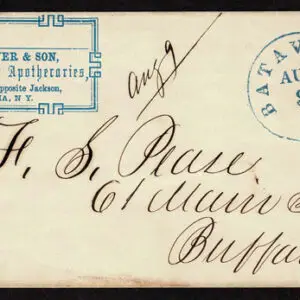 VER & SON,
Apothecaries,
pposite Jackson,
IA, N.Y.
aug 9
BATAV
AU
9
F. S. Pease
61 Main S
Buffa